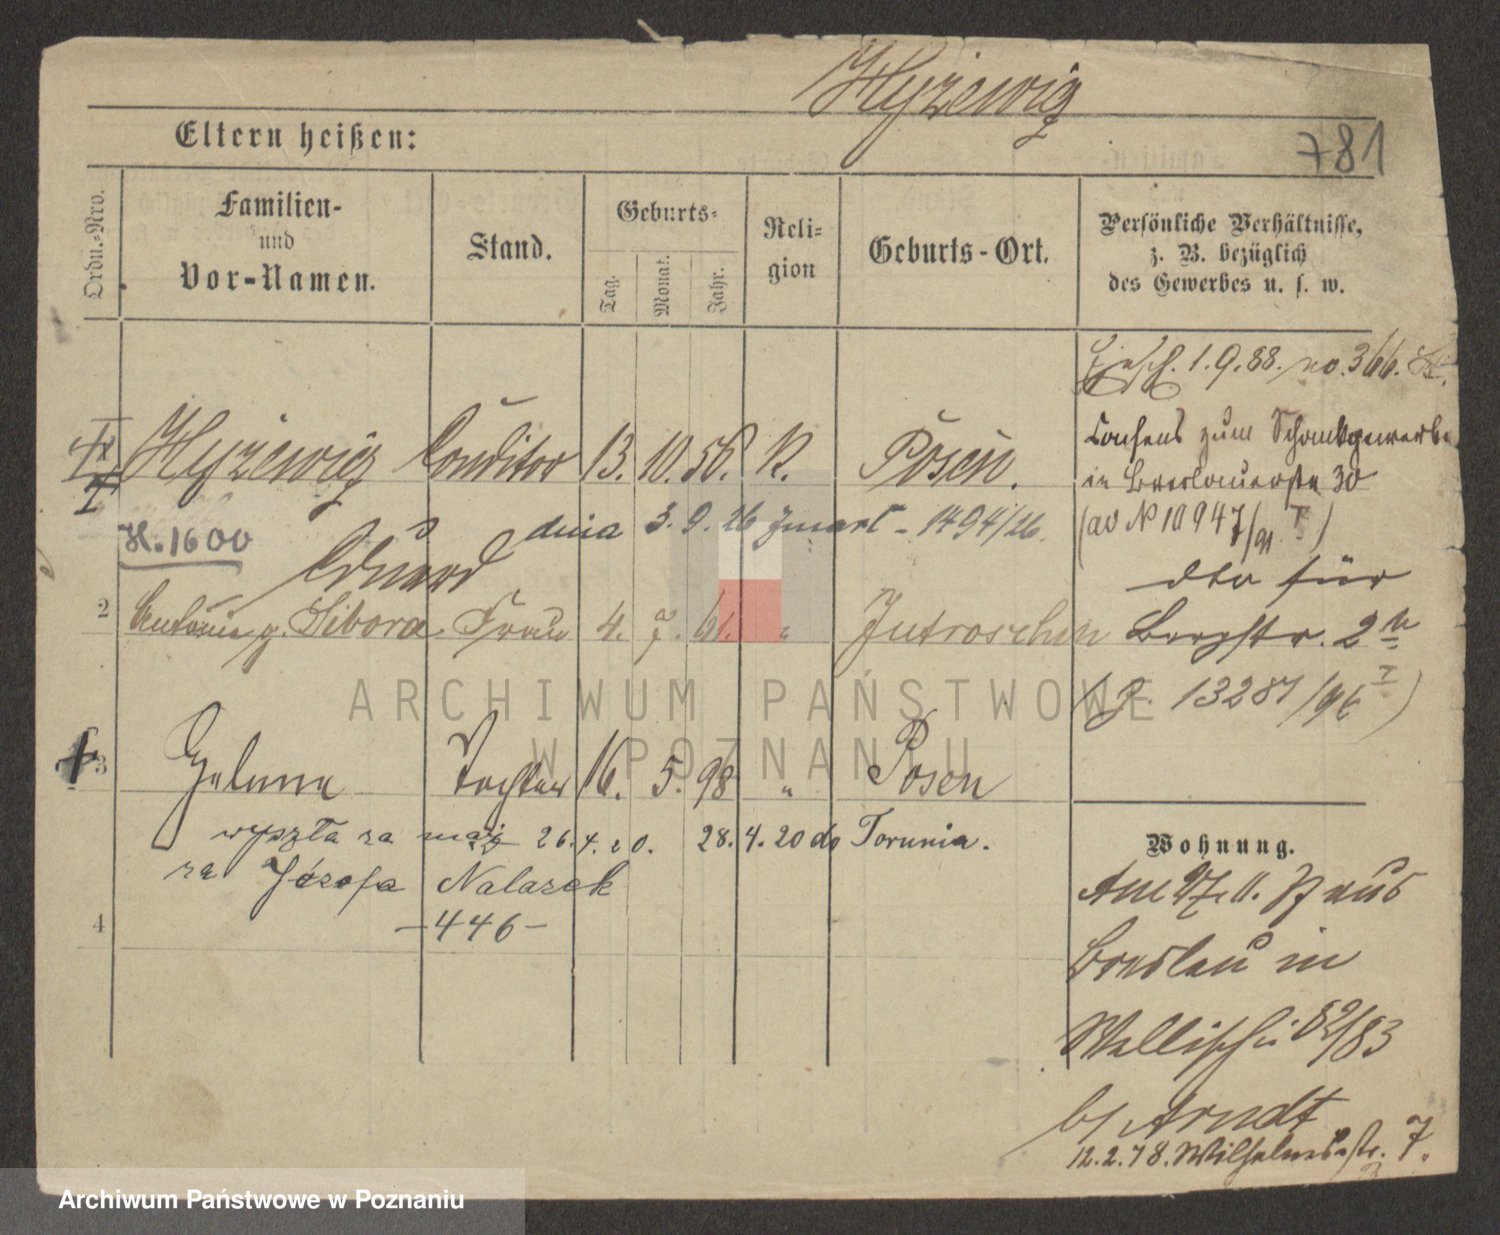 Hyżewicz
Eltern heißen:
781
Ordn.-Nro.
Familien-
und
Vor-Namen.
Stand.
Geburts-
Tag.
Monat.
Jahr.
Reli-
gion
Geburts-Ort.
Persönliche Verhältnisse,
z. B. bezüglich
des Gewerbes u. s. w.
1.9.88. no. 366.
Consens zum Schankgewerbe
in Breslauerstr 30
(ad N 10947/91 I)
dto für
Bergstr. 2 b
(J. 13287/96 I)
Hyżewicz Conditor 13. 10. 56. K. Posen.
H. 1600
dnia 3.9.26 zmarł - 1494/26.
Eduard
2 Antonie g. Sibora Frau 4. 7. 61. " Jutroschin
3 Helena Tochter 16. 5. 98 " Posen
wyszła za mąż 26.4.20. 28.4.20 do Torunia.
za Józefa Nalazek
-446-
4
Wohnung.
Am 27. 11. 77 aus
Breslau in
Wallischei 82/83
b/ Arndt
12.2.78. Wilhelmsstr. 7.
ARCHIWUM PAŃSTWOWE
W POZNANIU
Archiwum Państwowe w Poznaniu